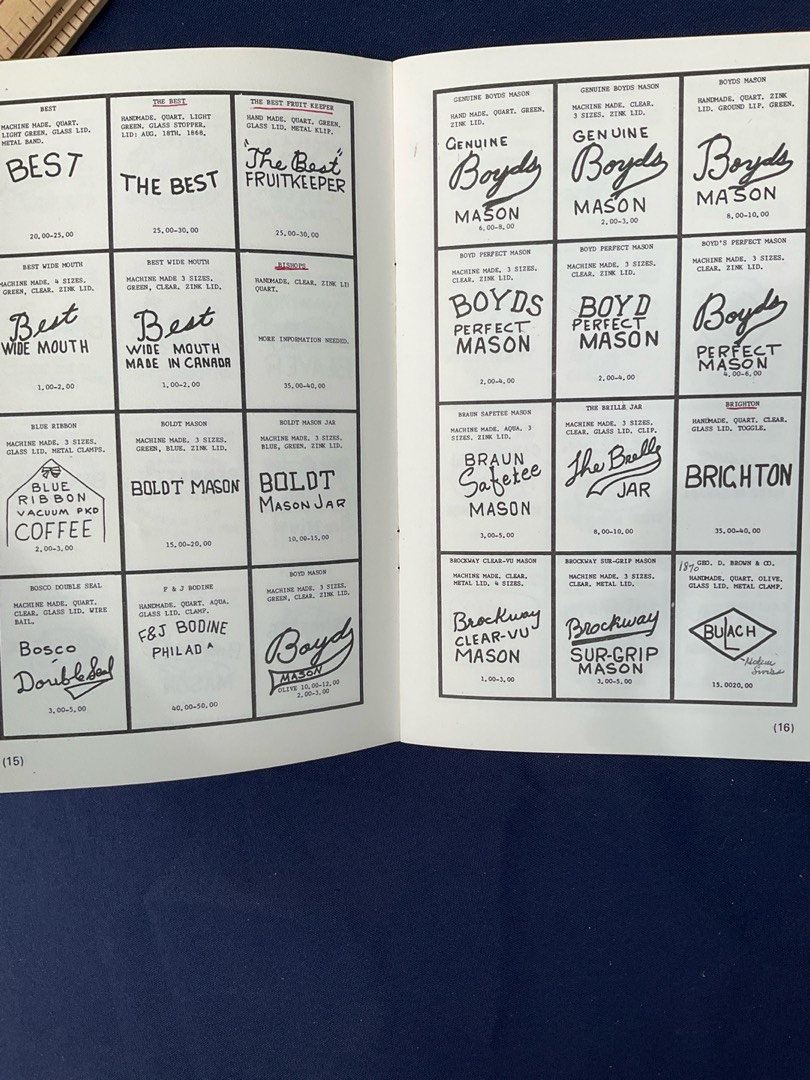 BEST
MACHINE MADE. QUART.
LIGHT GREEN. GLASS LID.
METAL BAND.
BEST
20.00-25.00
THE BEST
HANDMADE. QUART. LIGHT
GREEN, GLASS STOPPER.
LID: AUG. 18TH. 1868.
THE BEST
25.00-30.00
THE BEST FRUIT KEEPER
HAND MADE. QUART. GREEN.
GLASS LID. METAL KLIP.
"The Best"
FRUITKEEPER
25.00-30.00
BEST WIDE MOUTH
MACHINE MADE. 4 SIZES.
GREEN, CLEAR. ZINK LID.
Best
WIDE MOUTH
1.00-2.00
BEST WIDE MOUTH
MACHINE MADE 3 SIZES.
GREEN, CLEAR. ZINK LID.
Best
WIDE MOUTH
MADE IN CANADA
1.00-2.00
BISHOPS
HANDMADE, CLEAR. ZINK LID
QUART.
MORE INFORMATION NEEDED.
35.00-40.00
BLUE RIBBON
MACHINE MADE. 3 SIZES.
GLASS LID. METAL CLAMPS.
BLUE
RIBBON
VACUUM PKD
COFFEE
2.00-3.00
BOLDT MASON
MACHINE MADE. 3 SIZES.
GREEN, BLUE. ZINK LID.
BOLDT MASON
15.00-20.00
BOLDT MASON JAR
MACHINE MADE. 3 SIZES.
BLUE, GREEN. ZINK LID.
BOLDT
MASON JAR
10.00-15.00
BOSCO DOUBLE SEAL
MACHINE MADE. QUART.
CLEAR. GLASS LID. WIRE
BAIL.
Bosco
Double Seal
3.00-5.00
F & J BODINE
HANDMADE. QUART. AQUA.
GLASS LID. CLAMP.
F&J BODINE
PHILADA
40.00-50.00
BOYD MASON
MACHINE MADE. 3 SIZES.
GREEN, CLEAR. ZINK LID.
Boyd
MASON
OLIVE 10.00-12.00
2.00-3.00
(15)
GENUINE BOYDS MASON
HAND MADE. QUART. GREEN.
ZINK LID.
GENUINE
Boyds
MASON
6.00-8.00
GENUINE BOYDS MASON
MACHINE MADE. CLEAR.
3 SIZES. ZINK LID.
GENUINE
Boyds
MASON
2.00-3.00
BOYDS MASON
HANDMADE. QUART. ZINK
LID. GROUND LIP. GREEN.
Boyds
MASON
8.00-10.00
BOYD PERFECT MASON
MACHINE MADE. 3 SIZES.
CLEAR. ZINK LID.
BOYDS
PERFECT
MASON
2.00-4.00
BOYD PERFECT MASON
MACHINE MADE. 3 SIZES.
CLEAR. ZINK LID.
BOYD
PERFECT
MASON
2.00-4.00
BOYD'S PERFECT MASON
MACHINE MADE. 3 SIZES.
CLEAR. ZINK LID.
Boyds
PERFECT
MASON
4.00-6.00
BRAUN SAFETEE MASON
MACHINE MADE. AQUA. 3
SIZES. ZINK LID.
BRAUN
Safetee
MASON
3.00-5.00
THE BRILLE JAR
MACHINE MADE. 3 SIZES.
CLEAR. GLASS LID. CLIP.
The Brelle
JAR
8.00-10.00
BRIGHTON
HANDMADE. QUART. CLEAR.
GLASS LID. TOGGLE.
BRIGHTON
35.00-40.00
BROCKWAY CLEAR-VU MASON
MACHINE MADE. CLEAR.
METAL LID. 4 SIZES.
Brockway
CLEAR-VU
MASON
1.00-3.00
BROCKWAY SUR-GRIP MASON
MACHINE MADE. 3 SIZES.
CLEAR. METAL LID.
Brockway
SUR-GRIP
MASON
3.00-5.00
1870 GEO. D. BROWN & CO.
HANDMADE. QUART. OLIVE.
GLASS LID. METAL CLAMP.
BULACH
15.0020.00
(16)